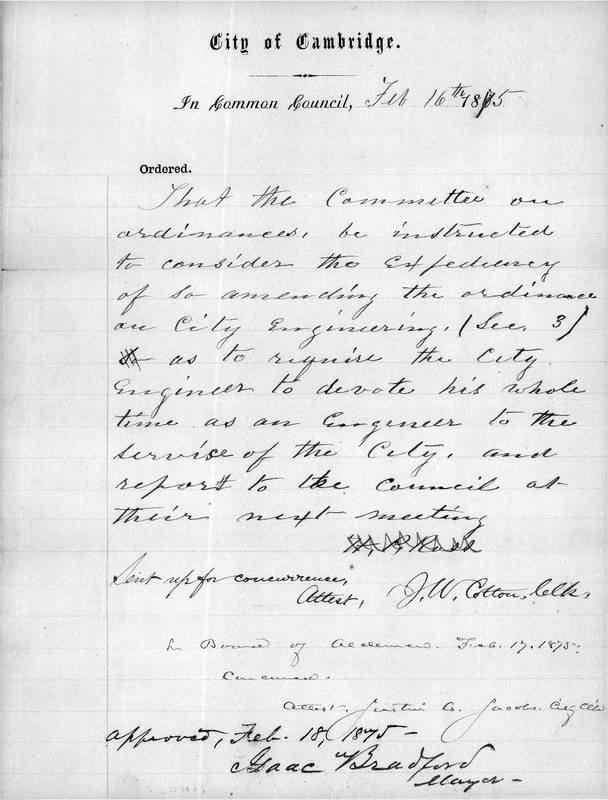 City of Cambridge.
In Common Council, Feb 16th 1875
Ordered.
That the Committee on
ordinances, be instructed
to consider the Expediency
of so amending the ordinance
on City Engineering, (Sec. 3)
as to require the City
Engineer to devote his whole
time as an Engineer to the
service of the City, and
report to the Council at
their next meeting
Sent up for concurrence,
Attest, J. W. Cotton, Clk.
In Board of Aldermen. Feb. 17. 1875.
Concurred.
Attest. Justin A. Jacobs. City Clk
approved, Feb. 18, 1875-
Isaac Bradford
Mayor-